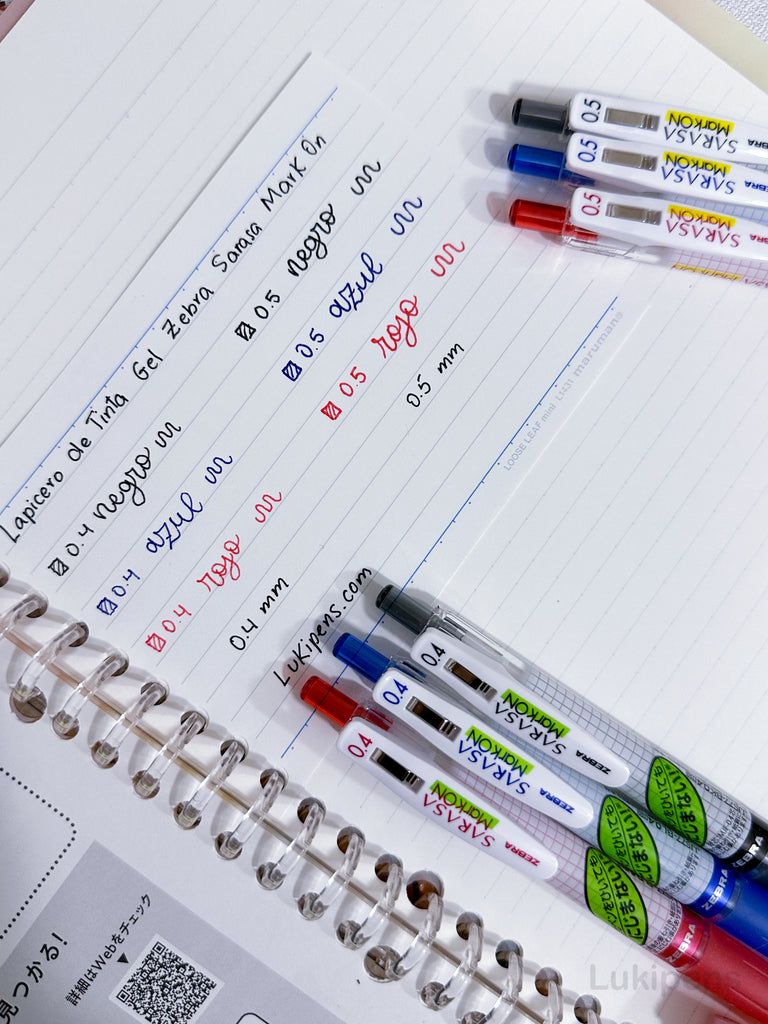 Lapicero de Tinta Gel Zebra Sarasa Mark On
0.5 negro
0.5 azul
0.5 rojo
0.5 mm
0.4 negro
0.4 azul
0.4 rojo
0.4 mm
Lukipens.com
LOOSE LEAF mini L1431 marumano
0.5 SARASA MarkON ZEBRA
0.5 SARASA MarkON ZEBRA
0.5 SARASA MarkON ZEBRA
0.4 SARASA MarkON ZEBRA
にじまない!!
ZEBRA
0.4 SARASA MarkON ZEBRA
にじまない
ZEBRA
0.4 SARASA MarkON ZEBRA
にじまない
ZEBRA
見つかる!
詳細はWebをチェック
Lukipens